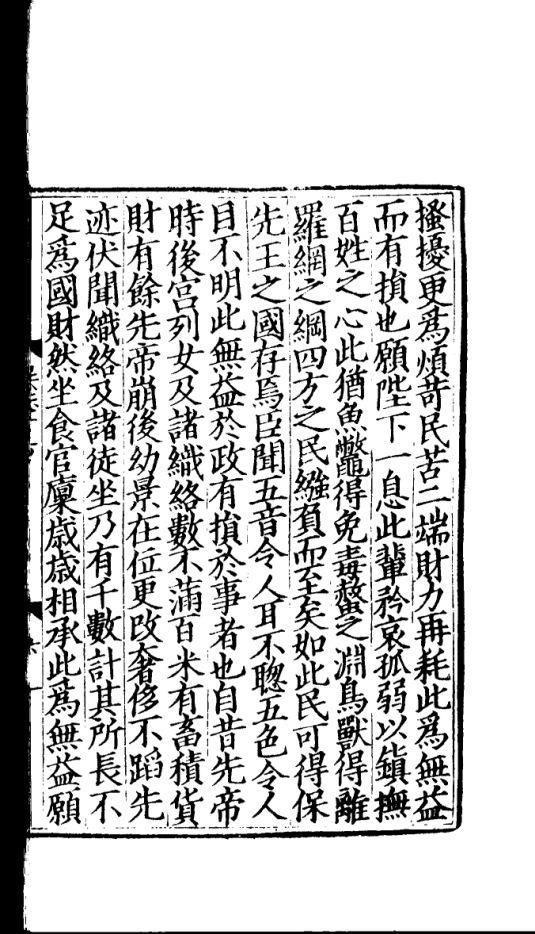 搔擾更爲煩苛民苦二端財力再耗此爲無益
而有損也願陛下一息此輩矜哀孤弱以鎮撫
百姓之心此猶魚鼈得免毒螫之淵鳥獸得離
羅網之綱四方之民繈負而至矣如此民可得保
先王之國存焉臣聞五音令人耳不聰五色令人
目不明此無益於政有損於事者也自昔先帝
時後宫列女及諸織絡數不滿百米有畜積貨
財有餘先帝崩後幼景在位更改奢侈不蹈先
迹伏聞織絡及諸徒坐乃有千數計其所長不
足爲國財然坐食官廪歳歳相承此爲無益願